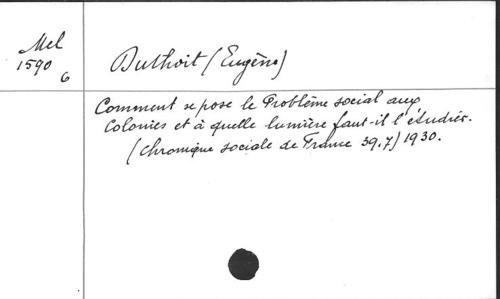 Mel
1590
6
Duthoit (Eugène)
Comment se pose le Problème social aux
Colonies et à quelle lumière faut-il l'étudier.
(Chronique sociale de France 39.7) 1930.